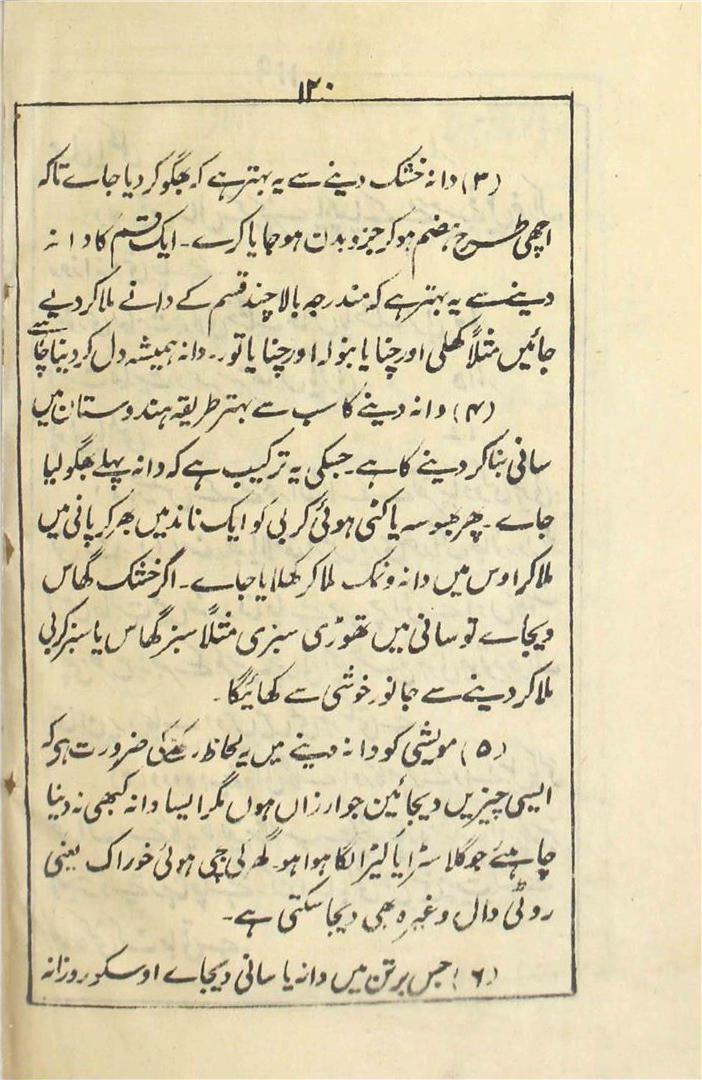 ۱۲۰
(۳) دانہ خشک دینے سے یہ بہتر ہے کہ بھگو کر دیا جاے تاکہ
اچھی طرح ہضم ہو کر جزو بدن ہو جایا کرے۔ ایک قسم کا دانہ
دینے سے یہ بہتر ہے کہ مندرجہ بالا چند قسم کے دانے ملا کر دیے
جائیں مثلاً کھلی اور چنا یا بنولہ اور چنا یا تور۔ دانہ ہمیشہ دل کر دینا چاہیے
(۴) دانہ دینے کا سب سے بہتر طریقہ ہندوستان میں
سانی بنا کر دینے کا ہے۔ جسکی یہ ترکیب ہے کہ دانہ پہلے بھگو لیا
جاے۔ پھر بھوسہ یا کٹی ہوئی کربی کو ایک ناند میں بھر کر پانی میں
ملا کر اوس میں دانہ و نمک ملا کر کھلایا جاے۔ اگر خشک گھاس
دیجاے تو سانی میں تھوڑی سبزی مثلاً سبز گھاس یا سبز کربی
ملا کر دینے سے جانور خوشی سے کھائیگا۔
(۵) مویشی کو دانہ دینے میں یہ لحاظ رکھنے کی ضرورت ہی کہ
ایسی چیزیں دیجائین جو ارزاں ہوں مگر ایسا دانہ کبھی نہ دینا
چاہئے جو گلا سڑا یا کیڑا لگا ہوا ہو۔ گھر کی بچی ہوئی خوراک یعنی
روٹی دال وغیرہ بھی دیجا سکتی ہے۔
(۶) جس برتن میں دانہ یا سانی دیجاے اوسکو روزانہ